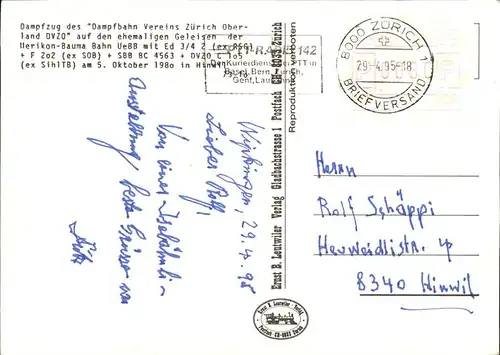 Dampfzug des "Dampfbahn Vereins Zürich Ober-
land DVZO" auf den ehemaligen Geleisen der
Uerikon-Bauma Bahn UeBB mit Ed 3/4 2 (ex RSG)
+ F 2o2 (ex SOB) + SBB BC 4563 + DVZO C 1o5
(ex SihlTB) am 5. Oktober 198o in Hinwil
142
Der Kurierdienst der PTT in
Basel, Bern, Zürich,
Genf, Lausanne
8000 ZÜRICH 1
29-4.95-18
BRIEFVERSAND
Wipkingen, 29.4.95
Lieber Rolf,
Von einer
Ausstellung beste Grüsse von
Ernst B. Leutwiler Verlag Gladbachstrasse 1 Postfach CH-8033 Zürich
Reproduktion verboten
Herrn
Rolf Schäppi
Heuweidlistr. 4
8340 Hinwil
Ernst B. Leutwiler - Verlag
Postfach CH-8033 Zürich